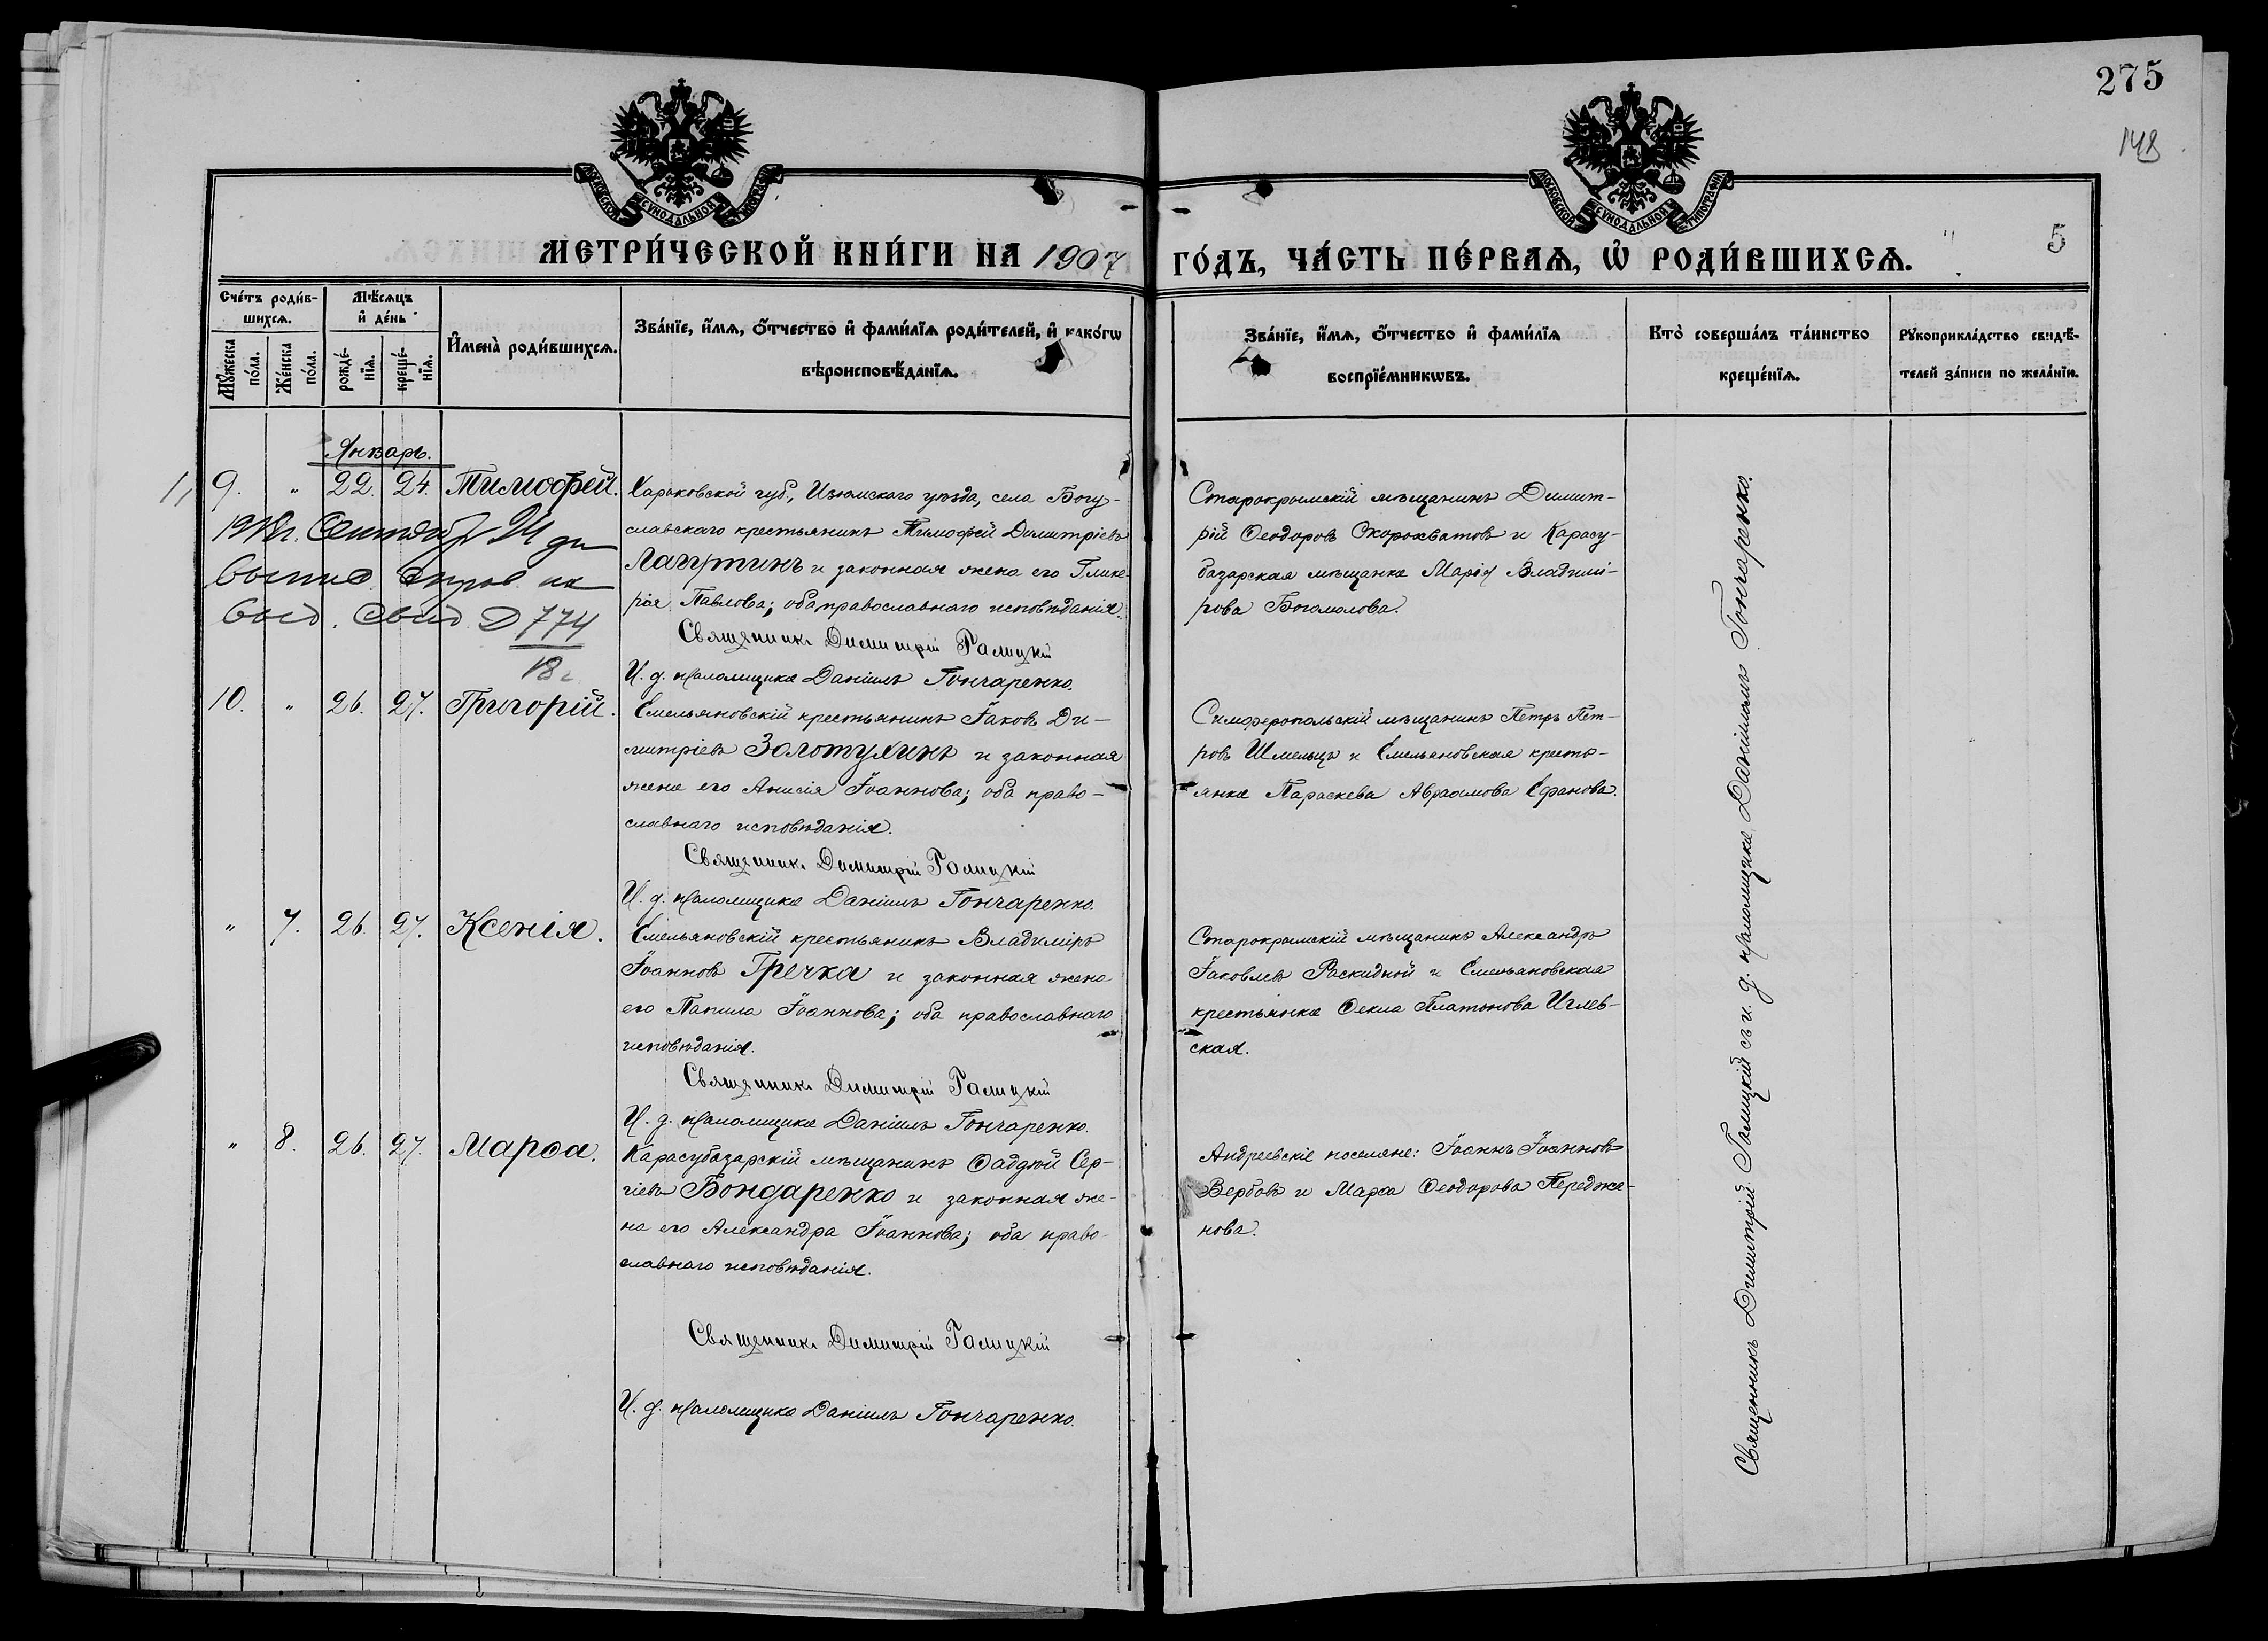 275
148
5
МОСКОВСКОЙ СѴНОДАЛЬНОЙ ТИПОГРАФІИ
МОСКОВСКОЙ СѴНОДАЛЬНОЙ ТИПОГРАФІИ
МЕТРИ́ЧЕСКОЙ КНИ́ГИ НА 1907
ГО́ДЪ, ЧА́СТЬ ПЕ́РВАѦ, Ѡ҆ РОДИ́ВШИХСѦ.
Сче́тъ роди́в-
шихсѧ.
Мꙋ́жеска по́ла.
Же́нска по́ла.
Мѣ́сѧцъ
и҆ де́нь
рожде́-
нїѧ.
креще́-
нїѧ.
И҆мена̀ роди́вшихсѧ.
Зва́нїе, и҆́мѧ, ѻ҆́тчество и҆ фами́лїѧ роди́телей, и҆ како́гѡ
вѣроисповѣ́данїѧ.
Зва́нїе, и҆́мѧ, ѻ҆́тчество и҆ фами́лїѧ
воспрїе́мникѡвъ.
Кто̀ соверша́лъ та́инство
креще́нїѧ.
Рꙋкоприкла́дство свидѣ́-
телей за́писи по жела́нїю.
Январь.
9. " 22. 24. Тимофей.
Харьковской губ., Изюмскаго уѣзда, села Богу-
славскаго крестьянинъ Тимофей Димитріевъ
Лагутинъ и законная жена его Глике-
рія Павлова; оба православнаго исповѣданія.
Священникъ Димитрій Галицкій
И. д. псаломщика Даніилъ Гончаренко.
Старокрымскій мѣщанинъ Димит-
рій Ѳеодоровъ Скорохватовъ и Карасу-
базарская мѣщанка Марія Владимі-
рова Богомолова.
1918г. 24 дн
выд. свид № 774
18г
10. " 26. 27. Григорій.
Емельяновскій крестьянинъ Іаковъ Ди-
митріевъ Золотухинъ и законная
жена его Анисія Іоаннова; оба право-
славнаго исповѣданія.
Священникъ Димитрій Галицкій
И. д. псаломщика Даніилъ Гончаренко.
Симферопольскій мѣщанинъ Петръ Пет-
ровъ Шмельцъ и Емельяновская кресть-
янка Параскева Авраамова Ефанова.
" 7. 26. 27. Ксенія.
Емельяновскій крестьянинъ Владиміръ
Іоанновъ Гречка и законная жена
его Іоаннова; оба православнаго
исповѣданія.
Священникъ Димитрій Галицкій
И. д. псаломщика Даніилъ Гончаренко.
Старокрымскій мѣщанинъ Александръ
Іаковлевъ Раскидной и Емельяновская
крестьянка Ѳекла Платонова Иглев-
ская.
" 8. 26. 27. Марѳа.
Карасубазарскій мѣщанинъ Ѳаддѣй Сер-
гіевъ Бондаренко и законная же-
на его Александра Іоаннова; оба право-
славнаго исповѣданія.
Священникъ Димитрій Галицкій
И. д. псаломщика Даніилъ Гончаренко.
Андреевскіе поселяне: Іоаннъ Іоанновъ
Вербовъ и Марѳа Ѳеодорова Передже-
нова.
Священникъ Димитрій Галицкій съ и. д. псаломщика Даніиломъ Гончаренко.